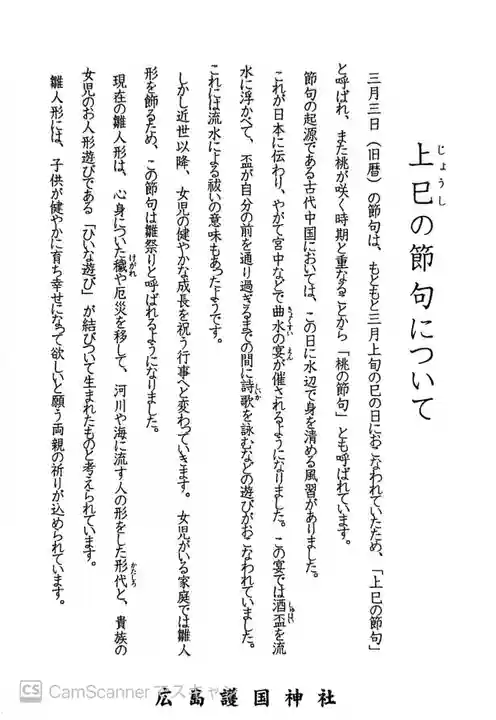 上巳の節句について
じょうし
三月三日（旧暦）の節句は、もともと三月上旬の巳の日におこなわれていたため、「上巳の節句」
と呼ばれ、また桃が咲く時期と重なることから「桃の節句」とも呼ばれています。
節句の起源である古代中国においては、この日に水辺で身を清める風習がありました。
これが日本に伝わり、やがて宮中などで曲水の宴が催されるようになりました。この宴では酒盃を流
きょくすい
えん
しゅはい
水に浮かべて、盃が自分の前を通り過ぎるまでの間に詩歌を詠むなどの遊びがおこなわれていました。
しいか
これには流水による祓いの意味もあったようです。
しかし近世以降、女児の健やかな成長を祝う行事へと変わっていきます。女児がいる家庭では雛人
形を飾るため、この節句は雛祭りと呼ばれるようになりました。
現在の雛人形は、心身についた穢や厄災を移して、河川や海に流す人の形をした形代と、貴族の
けがれ
かたしろ
女児のお人形遊びである「ひいな遊び」が結びついて生まれたものと考えられています。
雛人形には、子供が健やかに育ち幸せになって欲しいと願う両親の祈りが込められています。
広島護国神社
CS CamScanner でスキャン